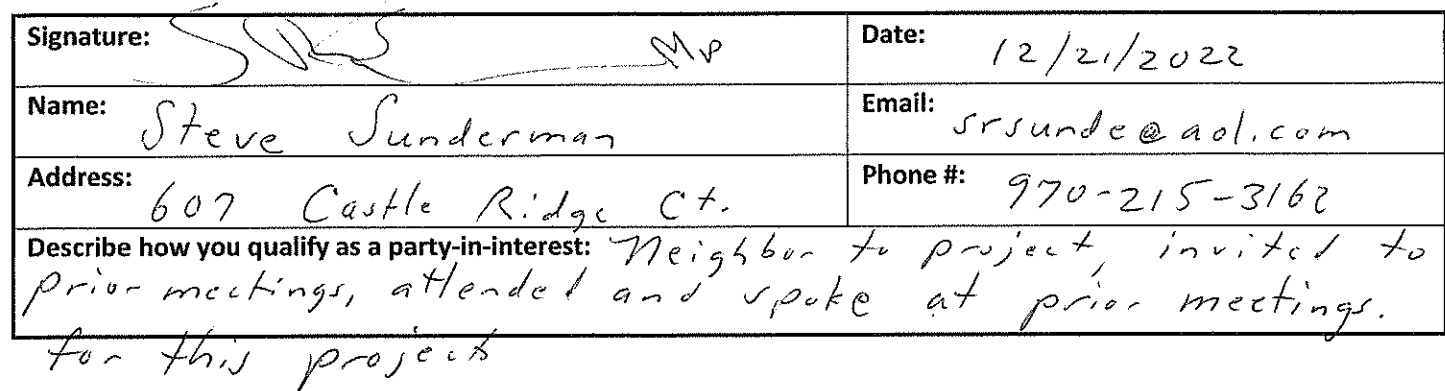 Signature: MD Date: 12/21/2022
Name: Steve Sunderman Email: srsunde@aol.com
Address: 607 Castle Ridge Ct. Phone #: 970-215-3162
Describe how you qualify as a party-in-interest: Neighbor to project, invited to
prior meetings, attended and spoke at prior meetings.
for this project